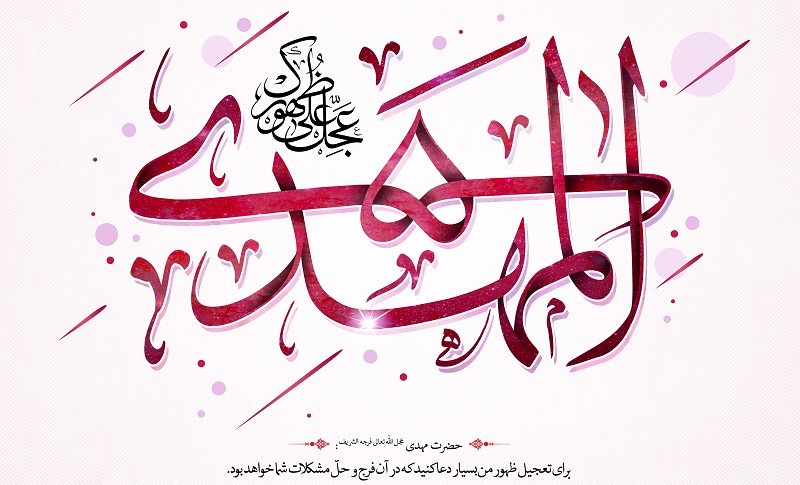 المهدی
عجل علی ظهورک
حضرت مهدی عجل الله تعالی فرجه الشریف:
برای تعجیل ظهور من بسیار دعا کنید که در آن فرج و حلّ مشکلات شما خواهد بود.